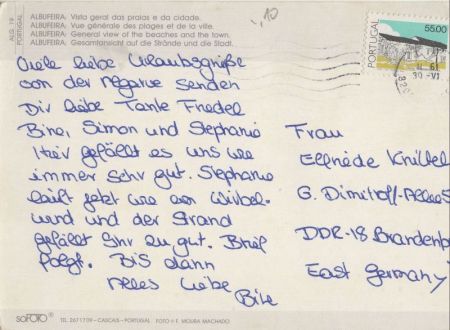 ALG. 19
PORTUGAL
ALBUFEIRA: Vista geral das praias e da cidade.
ALBUFEIRA: Vue générale des plages et de la ville.
ALBUFEIRA: General view of the beaches and the town.
ALBUFEIRA: Gesamtansicht auf die Strände und die Stadt.
10
PORTUGAL
55.00
Viele liebe Urlaubsgrüße
von der Algarve senden
Dir liebe Tante Friedel
Bine, Simon und Stephanie
Hier gefällt es uns wie
immer sehr gut. Stephanie
läuft jetzt wie ein Wirbel-
wind und der Strand
gefällt Ihr zu gut. Brief
folgt. Bis dann
Alles Liebe
Bine
Frau
Elfriede Knittel
G. Dimitroff-Allee 5
DDR-18 Brandenb
East Germany
SOFOTO ®
TEL. 2671709 - CASCAIS - PORTUGAL FOTO: F. MOURA MACHADO